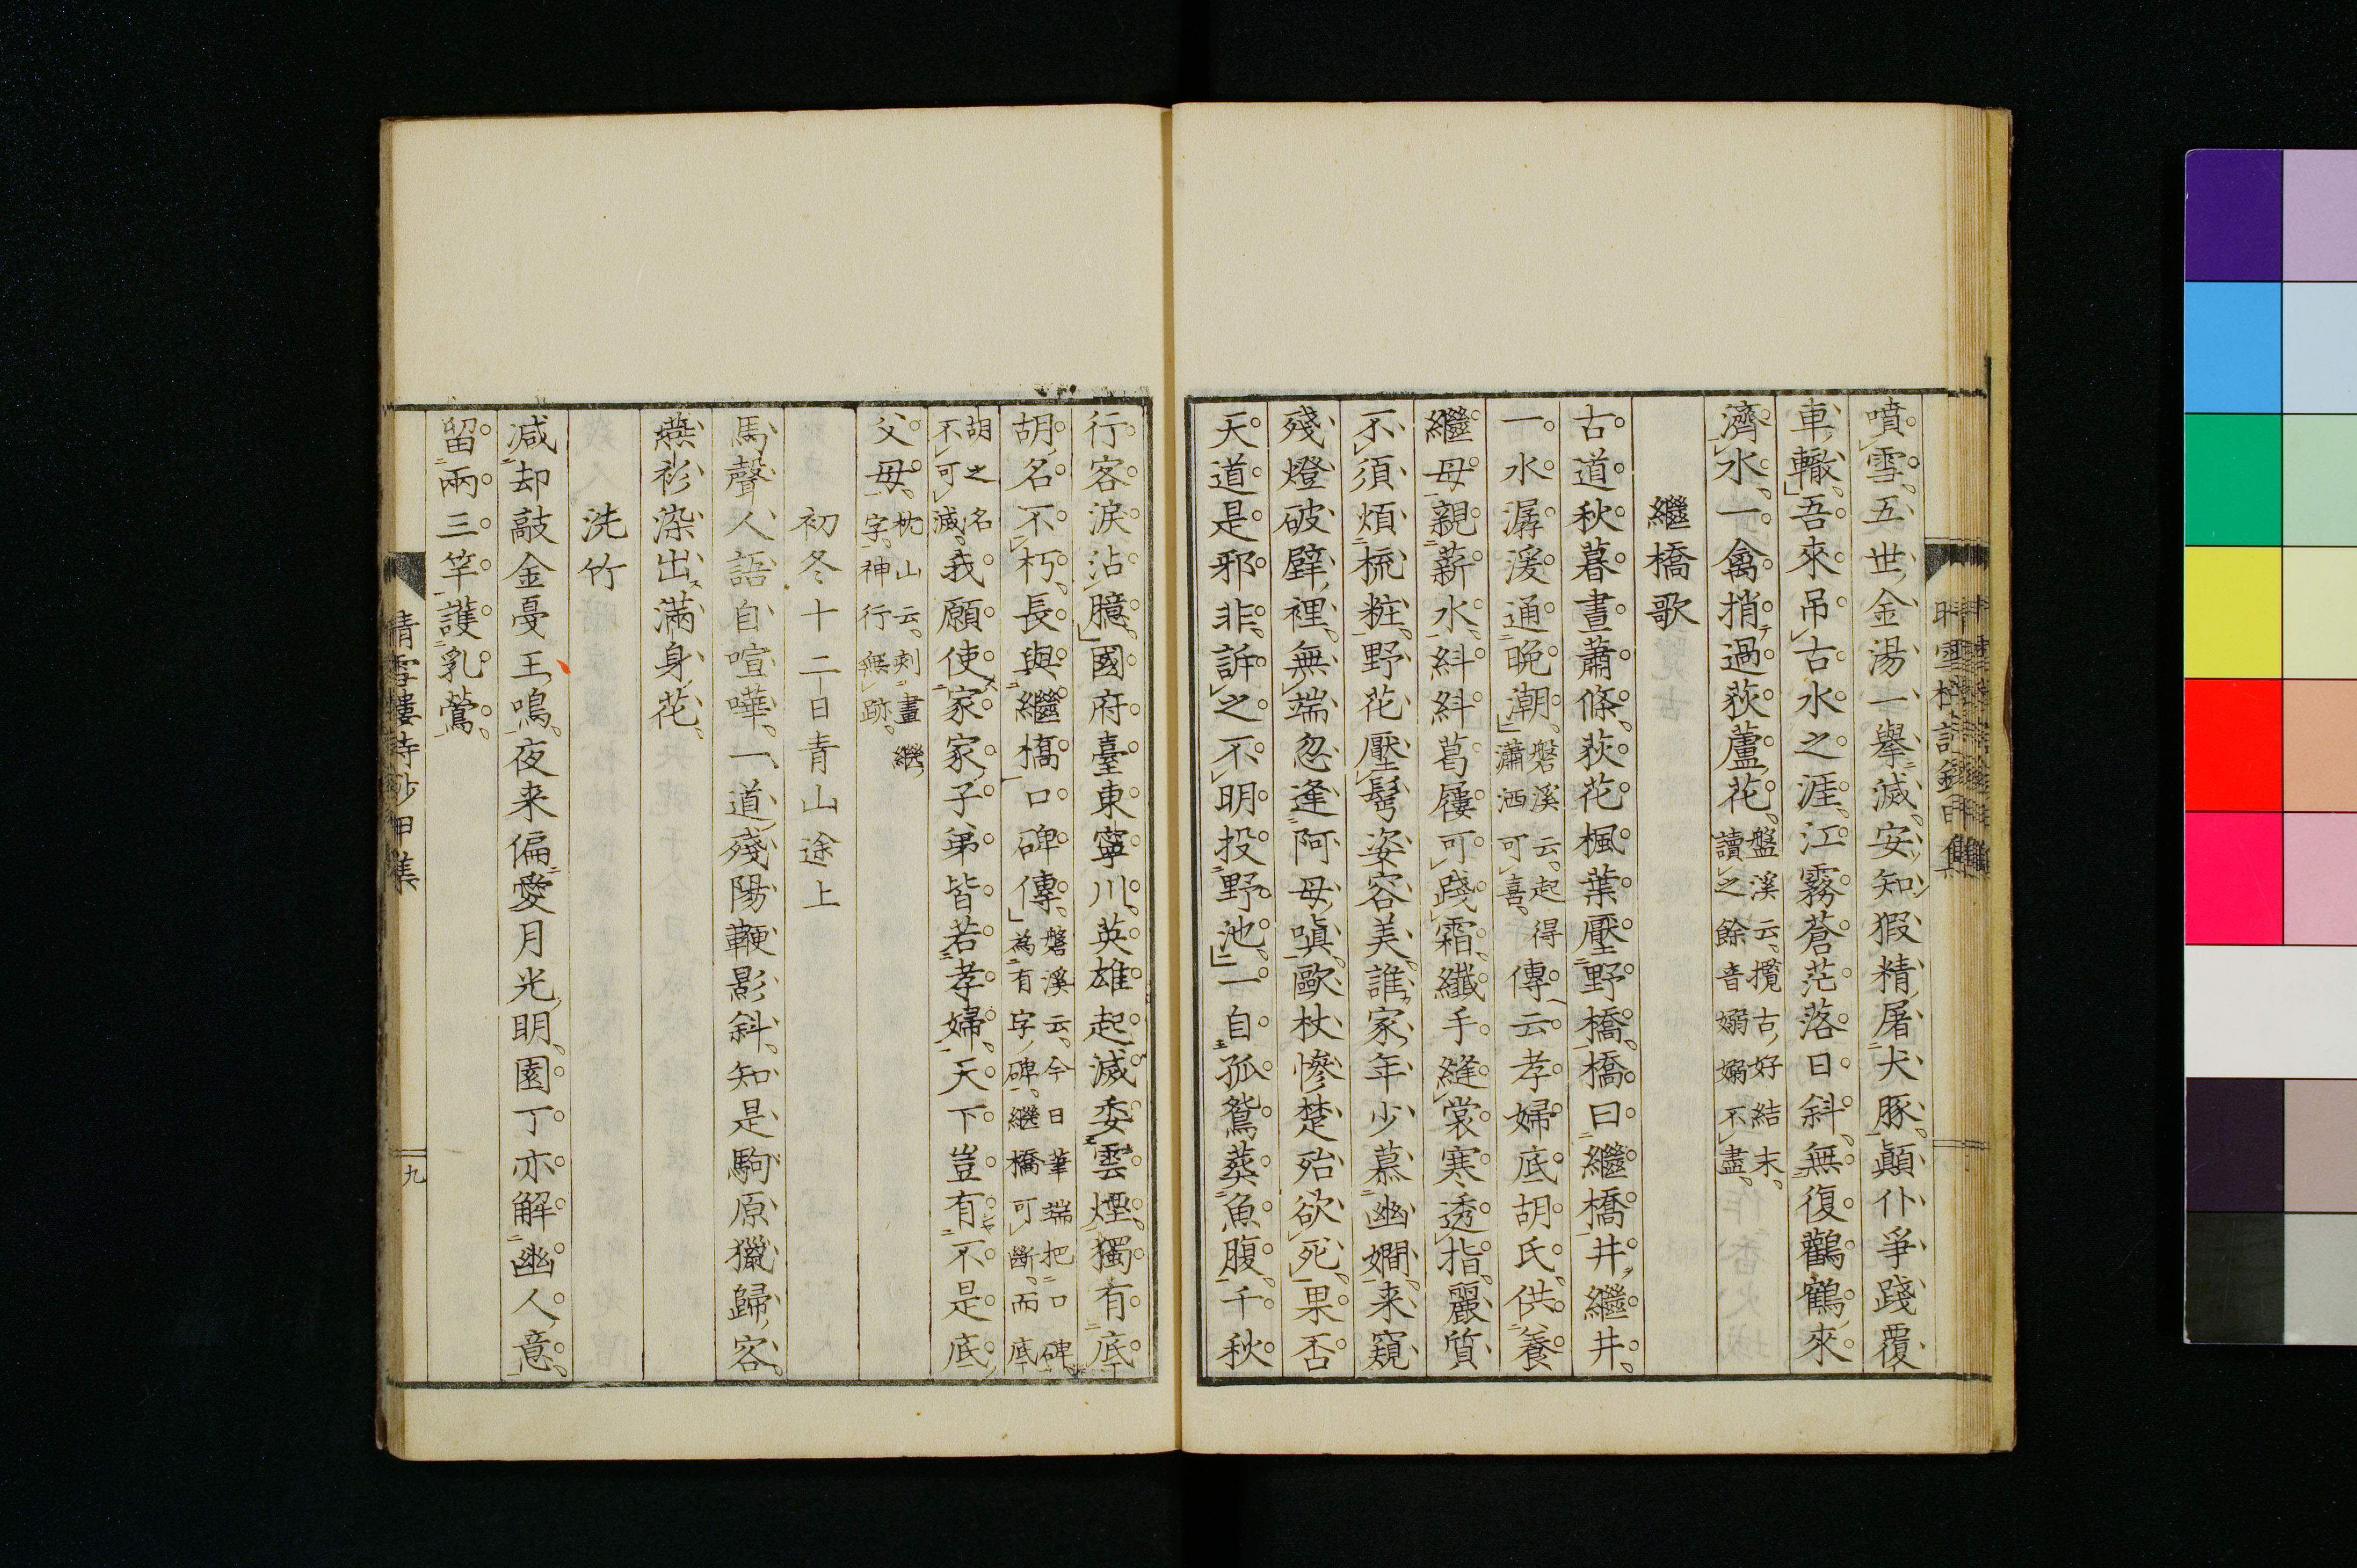 噴雪五世金湯一擧滅安知猳精屠犬豚顚仆爭踐覆
車轍吾來吊古水之涯江霧蒼茫落日斜無復鸛鶴來
濟水一禽捎過荻蘆花盤溪云攬古好結末
讀之餘音嫋嫋不盡
繼橋歌
古道秋暮晝蕭條荻花楓葉壓野橋橋曰繼橋井繼井
一水潺湲通晩潮磐溪云起得
瀟洒可喜傳云孝婦底胡氏供養
繼母親薪水糾糾葛屨可踐霜纖手縫裳寒透指麗質
不須煩梳粧野花壓鬢姿容美誰家年少慕幽嫺来窺
殘燈破壁裡無端忽逢阿母嗔歐杖慘楚殆欲死果否
天道是邪非訴之不明投野池一自孤鴛葬魚腹千秋
行客淚沾臆國府臺東寧川英雄起滅委雲煙獨有底
胡名不朽長與繼橋口碑傳磐溪云今日華端把口碑
為有字碑繼橋可斷而底
胡之名
不可滅我願使家家子弟皆若孝婦天下豈有不是底
父母枕山云刻畫繼
字神行無跡
初冬十二日青山途上
馬聲人語自喧嘩一道殘陽鞭影斜知是駒原獵歸客
燕衫染出滿身花
洗竹
减却敲金戞玉鳴夜来偏愛月光明園丁亦解幽人意
留兩三竿護乳鶯
晴雪樓詩鈔甲集
九